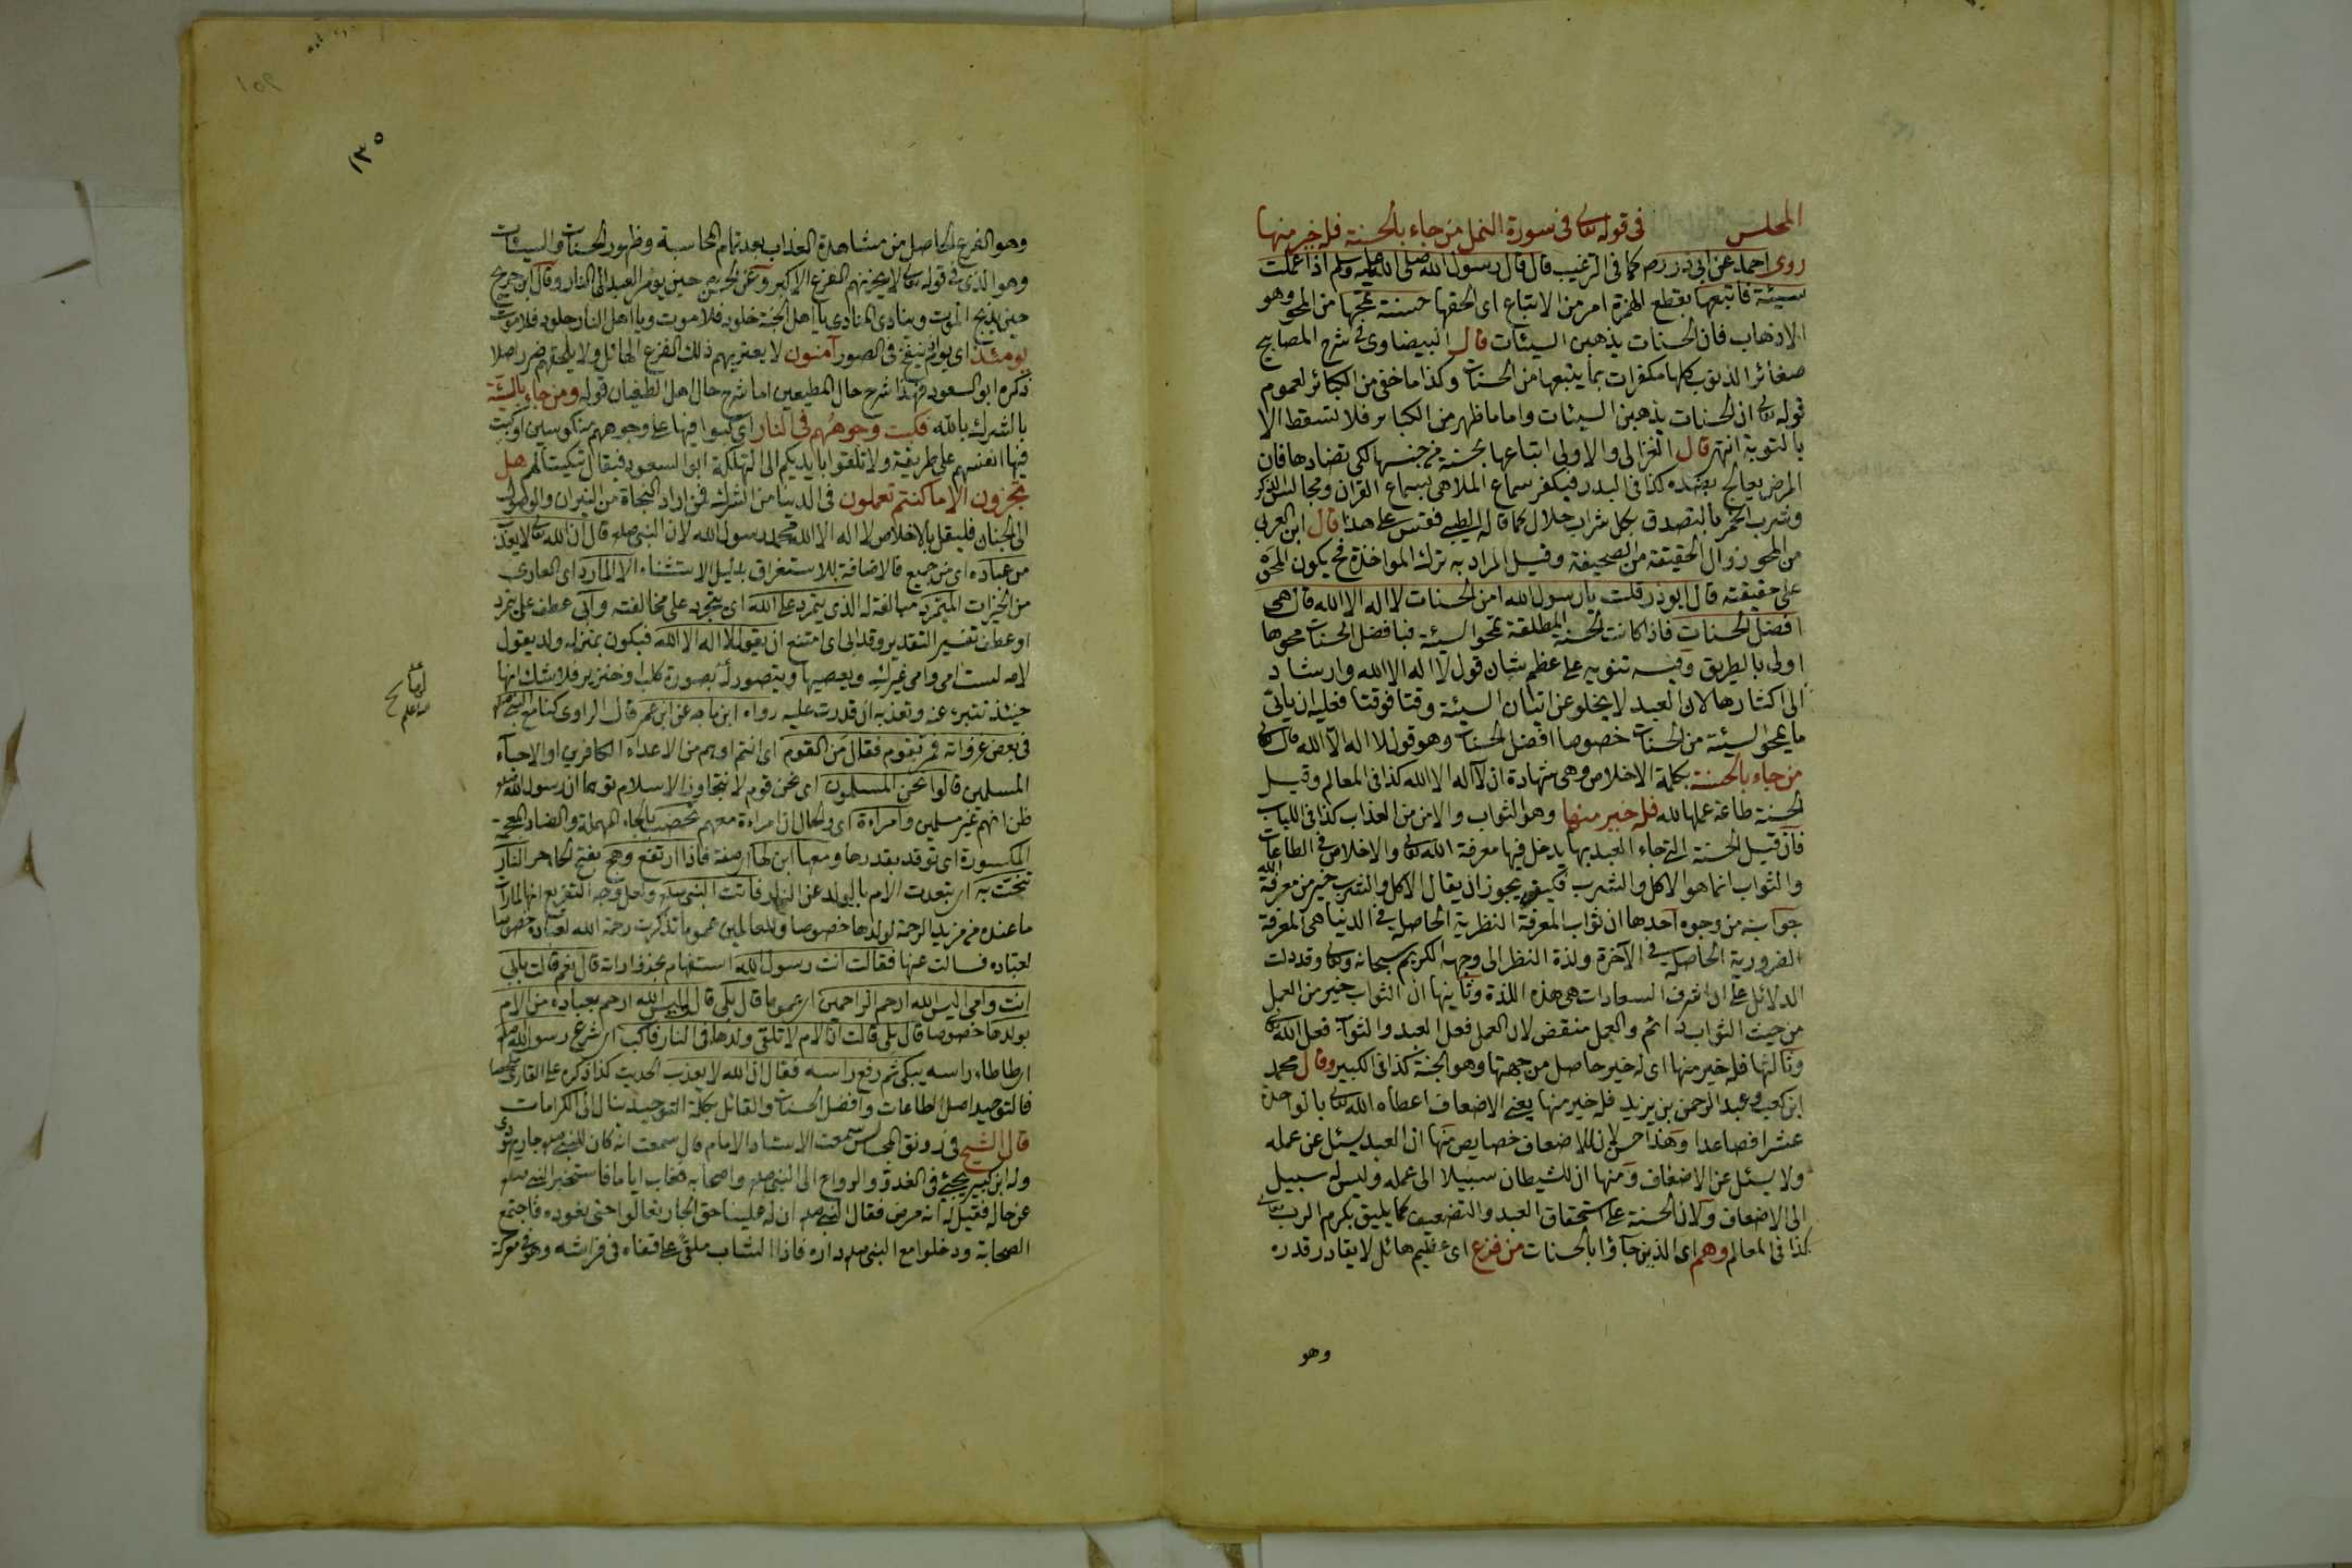 المجلس في قوله تعالى في سورة النمل من جاء بالحسنة فله خير منها
روى احمد عن ابى ذر رضه كما في الترغيب قال قال رسول الله صلى الله عليه وسلم اذا عملت
سيئة فاتبعها بقطع الهمزة امر من الاتباع اى الحقها حسنة تمحها من المحو وهو
الاذهاب فان الحسنات يذهبن السيئات قال البيضاوى في شرح المصابيح
صغائر الذنوب كلها مكفرات بما يتبعها من الحسنات وكذا ما خفى من الكبائر لعموم
قوله تعالى ان الحسنات يذهبن السيئات واما ما ظهر من الكبائر فلا تسقط الا
بالتوبة انتهى قال الغزالى والاولى اتباعها بحسنة من جنسها لكى تضادها فان
المرض يعالج بضده كذا في البدر فيكفر سماع الملاهى بسماع القران ومجالس الذكر
وشرب الخمر بالتصدق بكل شراب حلال كما قاله الطيبى فقس على هذا قال ابن العربى
من المحو زوال الحقيقة من الصحيفة وقيل المراد به ترك المواخذة فح يكون المحو
على حقيقته قال ابوذر قلت يا رسول الله امن الحسنات لا اله الا الله قال هى
افضل الحسنات فاذا كانت الحسنة المطلقة تمحو السيئة فبافضل الحسنات محوها
اولى بالطريق وفيه تنويه على عظم شان قول لا اله الا الله وارشاد
الى اكثارها لان العبد لا يخلو عن اتيان السيئة وقتا فوقتا فعليه ان ياتى
ما يمحو السيئة من الحسنات خصوصا افضل الحسنات وهو قول لا اله الا الله قال تعالى
من جاء بالحسنة بكلمة الاخلاص وهى شهادة ان لا اله الا الله كذا في المعالم وقيل
الحسنة طاعة عملها لله فله خير منها وهو الثواب والامن من العذاب كذا في اللباب
فان قيل الحسنة التى جاء العبد بها يدخل فيها معرفة الله تعالى والاخلاص في الطاعات
والثواب انما هو الاكل والشرب فكيف يجوز ان يقال الاكل والشرب خير من معرفة الله
جوابه من وجوه احدها ان ثواب المعرفة النظرية الحاصلة في الدنيا هى المعرفة
الضرورية الحاصلة في الآخرة ولذة النظر الى وجهه الكريم سبحانه وتعالى وقد دلت
الدلائل على ان اشرف السعادات هى هذه اللذة وثانيها ان الثواب خير من العمل
من حيث الثواب دائم والعمل منقض لان العمل فعل العبد والثواب فعل الله تعالى
وثالثها فله خير منها اى له خير حاصل من جهتها وهو الجنة كذا في الكبير وقال محمد
ابن كعب وعبد الرحمن بن يزيد فله خير منها يعنى الاضعاف اعطاه الله تعالى بالواحدة
عشرا فصاعدا وهذا حسن لان للاضعاف خصايص منها ان العبد يسئل عن عمله
ولا يسئل عن الاضعاف ومنها ان للشيطان سبيلا الى عمله وليس له سبيل
الى الاضعاف ولان الحسنة على استحقاق العبد والتضعيف كما يليق بكرم الرب تعالى
كذا في المعالم وهم اى الذين جاؤا بالحسنات من فزع اى عظيم هائل لا يقادر قدره
وهو
١٣٥
وهو الفزع الحاصل من مشاهدة العذاب بعد تمام المحاسبة وظهور الحسنات والسيئات
وهو الذى في قوله تعالى لا يحزنهم الفزع الاكبر وعن الحسن حين يؤمر العبد الى النار وقال ابن جريج
حين يذبح الموت وينادى المنادى يا اهل الجنة خلود فلا موت ويا اهل النار خلود فلا موت
يومئذ اى يوم ينفخ في الصور آمنون لا يعتريهم ذلك الفزع الهائل ولا يلحقهم ضرر اصلا
ذكره ابو السعود فهذا شرح حال المطيعين اما شرح حال اهل الطغيان قوله ومن جاء بالسيئة
بالشرك بالله فكبت وجوههم في النار اى كبوا فيها على وجوههم منكوسين او كبت
فيها انفسهم على طريقة ولا تلقوا بايديكم الى التهلكة ابو السعود فيقال تبكيتا لهم هل
تجزون الا ما كنتم تعملون في الدنيا من الشرك فمن اراد النجاة من النيران والوصول
الى الجنان فليقل بالاخلاص لا اله الا الله محمد رسول الله لان النبى صلعم قال ان الله تعالى لا يعذب
من عباده اى من جميع فالاضافة للاستغراق بدليل الاستثناء الا المارد اى العارى
من الخيرات المتمرد مبالغة له الذى يتمرد على الله اى يتجرد على مخالفته وابى عطف على يتمرد
او عطف تفسير التقدير وقد ابى اى امتنع ان يقول لا اله الا الله فيكون بمنزلة ولد يقول
لامه لست امى وامى غيرك ويعصيها ويتصور له بصورة كلب او خنزير فلا شك انها
حينئذ تتبرء عنه وتعذبه ان قدرت عليه رواه ابن ماجه عن ابن عمر قال الراوى كنا مع النبى صلعم
في بعض غزواته فمر بقوم فقال من القوم اى انتم او هم من الاعداء الكافرين او الاحباء
المسلمين قالوا نحن المسلمون اى نحن قوم لا نتجاوز الاسلام توهما ان رسول الله صلعم
ظن انهم غير مسلمين وامراءة اى والحال ان امراءة معهم تحضب بالحاء المهملة والضاد المعجمة
المكسورة اى توقد بقدرها ومعها ابن لها صفة فاذا ارتفع وهج بفتح الحاء حر النار
تنحت به اى تبعدت الام بالولد عن النار فاتت النبى صلعم ولعل وجه التفريع انها لما رات
ما عنده من مزيد الرحمة لولدها خصوصا وللعالمين عموما تذكرت رحمة الله لعباده خصوصا
لعباده فسالت عنها فقالت انت رسول الله استفهام بحذف اداته قال نعم قالت بابى
انت وامى اليس الله ارحم الراحمين اى عموما قال بلى قال اليس الله ارحم بعباده من الام
بولدها خصوصا قال بلى قالت ان الام لا تلقى ولدها في النار فاكب اى شرع رسول الله صلعم
اى طاطاء راسه يبكى ثم رفع راسه فقال ان الله لا يعذب الحديث كذا ذكره على القارى ملخصا
فالتوحيد اصل الطاعات وافضل الحسنات والقائل بكلمة التوحيد ينال الى الكرامات
قال الشيخ في رونق المجالس سمعت الاستاد الامام قال سمعت انه كان للنبى صلعم جار يهودى
وله ابن كبير يجئ في الغدو والرواح الى النبى صلعم واصحابه فغاب اياما فاستخبر النبى صلعم
عن حاله فقيل له انه مرض فقال النبى صلعم ان له علينا حق الجار تعالوا حتى نعوده فاجتمع
الصحابة ودخلوا مع النبى صلعم داره فاذا الشاب ملقى على قفاه في فراشه وهو في معركة